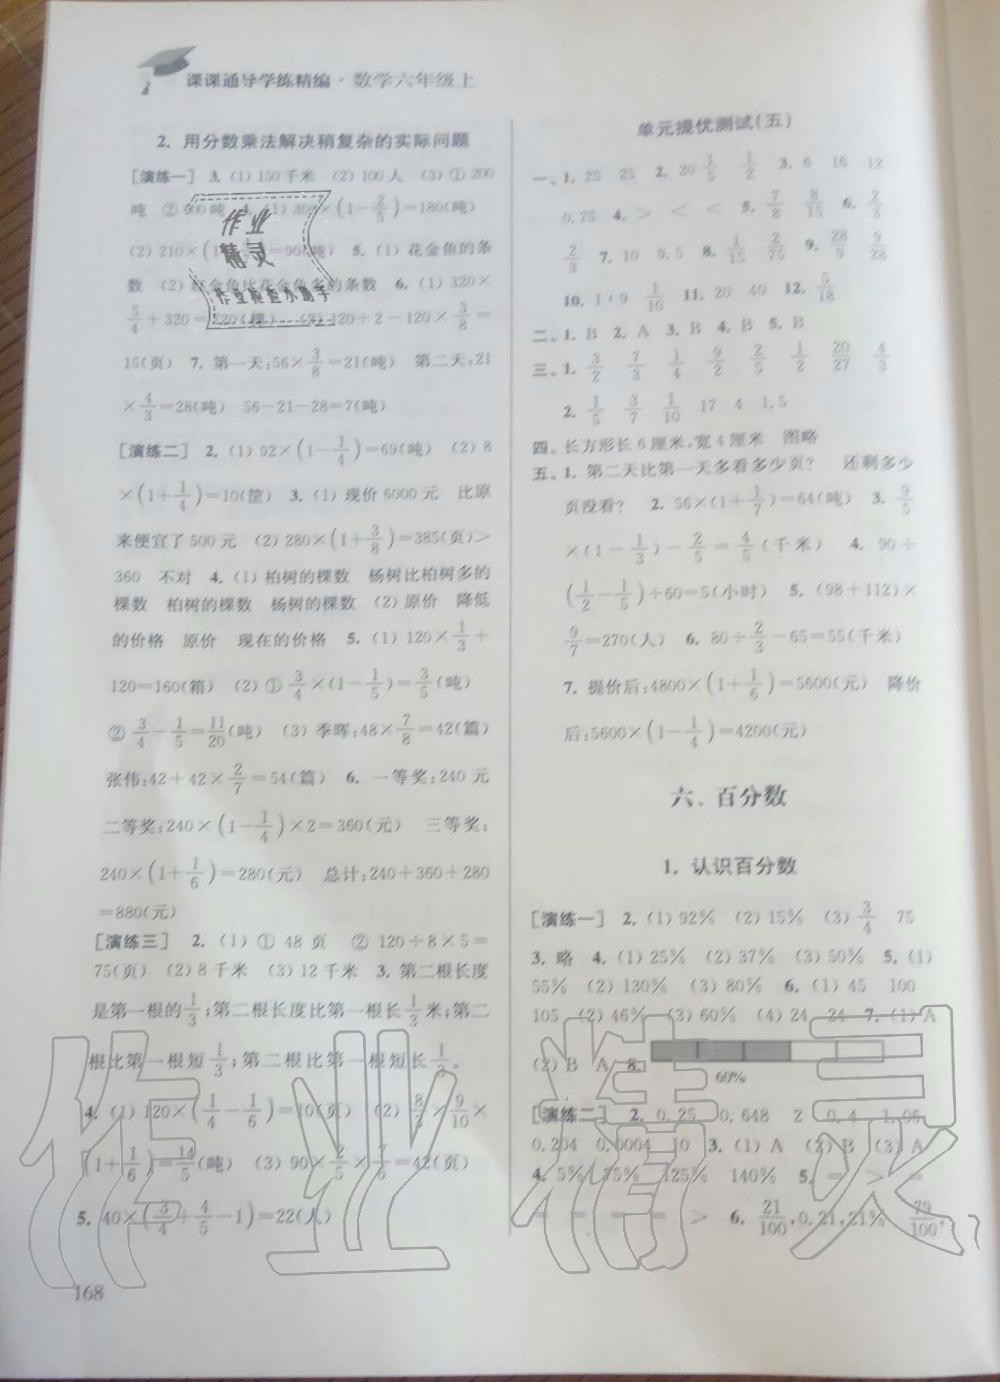 课课通导学练精编·数学六年级上
2. 用分数乘法解决稍复杂的实际问题
[演练一] 3. (1) 150千米 (2) 100人 (3) ① 200
吨 ② 600吨 (1) 300×(1-2/5)=180(吨)
(2) 210× =90(吨) 5. (1) 花金鱼的条
数 (2) 金鱼比花金鱼多的条数 6. (1) 320×
5/4+320=720(棵) (2) 120÷2-120×3/8=
15(页) 7. 第一天:56×3/8=21(吨) 第二天:21
×4/3=28(吨) 56-21-28=7(吨)
[演练二] 2. (1) 92×(1-1/4)=69(吨) (2) 8
×(1+1/4)=10(筐) 3. (1) 现价6000元 比原
来便宜了500元 (2) 280×(1+3/8)=385(页)>
360 不对 4. (1) 柏树的棵数 杨树比柏树多的
棵数 柏树的棵数 杨树的棵数 (2) 原价 降低
的价格 原价 现在的价格 5. (1) 120×1/3+
120=160(箱) (2) ① 3/4×(1-1/5)=3/5(吨)
② 3/4-1/5=11/20(吨) (3) 季晖:48×7/8=42(篇)
张伟:42+42×2/7=54(篇) 6. 一等奖:240元
二等奖:240×(1-1/4)×2=360(元) 三等奖:
240×(1+1/6)=280(元) 总计:240+360+280
=880(元)
[演练三] 2. (1) ① 48页 ② 120÷8×5=
75(页) (2) 8千米 (3) 12千米 3. 第二根长度
是第一根的1/3;第二根长度比第一根长1/3米;第二
根比第一根短1/3;第二根比第一根短长1/3。
4. (1) 120×(1/4-1/6)=10(页) (2) ×9/10×
(1+1/6)=14/5(吨) (3) 90×2/5×7/6=42(页)
5. 40×(3/4+4/5-1)=22(人)
168
作业
精灵
作业检查小助手
单元提优测试(五)
一、1. 25 25 2. 20 1/5 1/2 3. 6 16 12
0.75 4. > < < 5. 7/8 8/15 6. 2/3
2/3 7. 10 9.5 8. 1/15 2/75 9. 28/9 9/28
10. 1:9 1/10 11. 20 40 12. 5/18
二、1. B 2. A 3. B 4. B 5. B
三、1. 3/2 7/3 1/4 9/2 2/5 1/2 20/27 4/3
2. 1/5 3/7 1/10 17 4 1.5
四、长方形长6厘米,宽4厘米 图略
五、1. 第二天比第一天多看多少页? 还剩多少
页没看? 2. 56×(1+1/7)=64(吨) 3. 9/5
×(1-1/3)-2/5=4/5(千米) 4. 90÷
(1/2-1/5)÷60=5(小时) 5. (98+112)×
9/7=270(人) 6. 80÷2/3-65=55(千米)
7. 提价后:4800×(1+1/6)=5600(元) 降价
后:5600×(1-1/4)=4200(元)
六、百分数
1. 认识百分数
[演练一] 2. (1) 92% (2) 15% (3) 3/4 75
3. 略 4. (1) 25% (2) 37% (3) 50% 5. (1)
55% (2) 130% (3) 80% 6. (1) 45 100
105 (2) 46% (3) 60% (4) 24 24 7. (1) A
(2) B A 8.
60%
[演练二] 2. 0.25 0.648 2 0.4 1.06
0.204 0.0004 10 3. (1) A (2) B (3) A
4. 5% 75% 125% 140% 5. = > =
= = = = > 6. 21/100,0.21,21% 79/100,
作业精灵